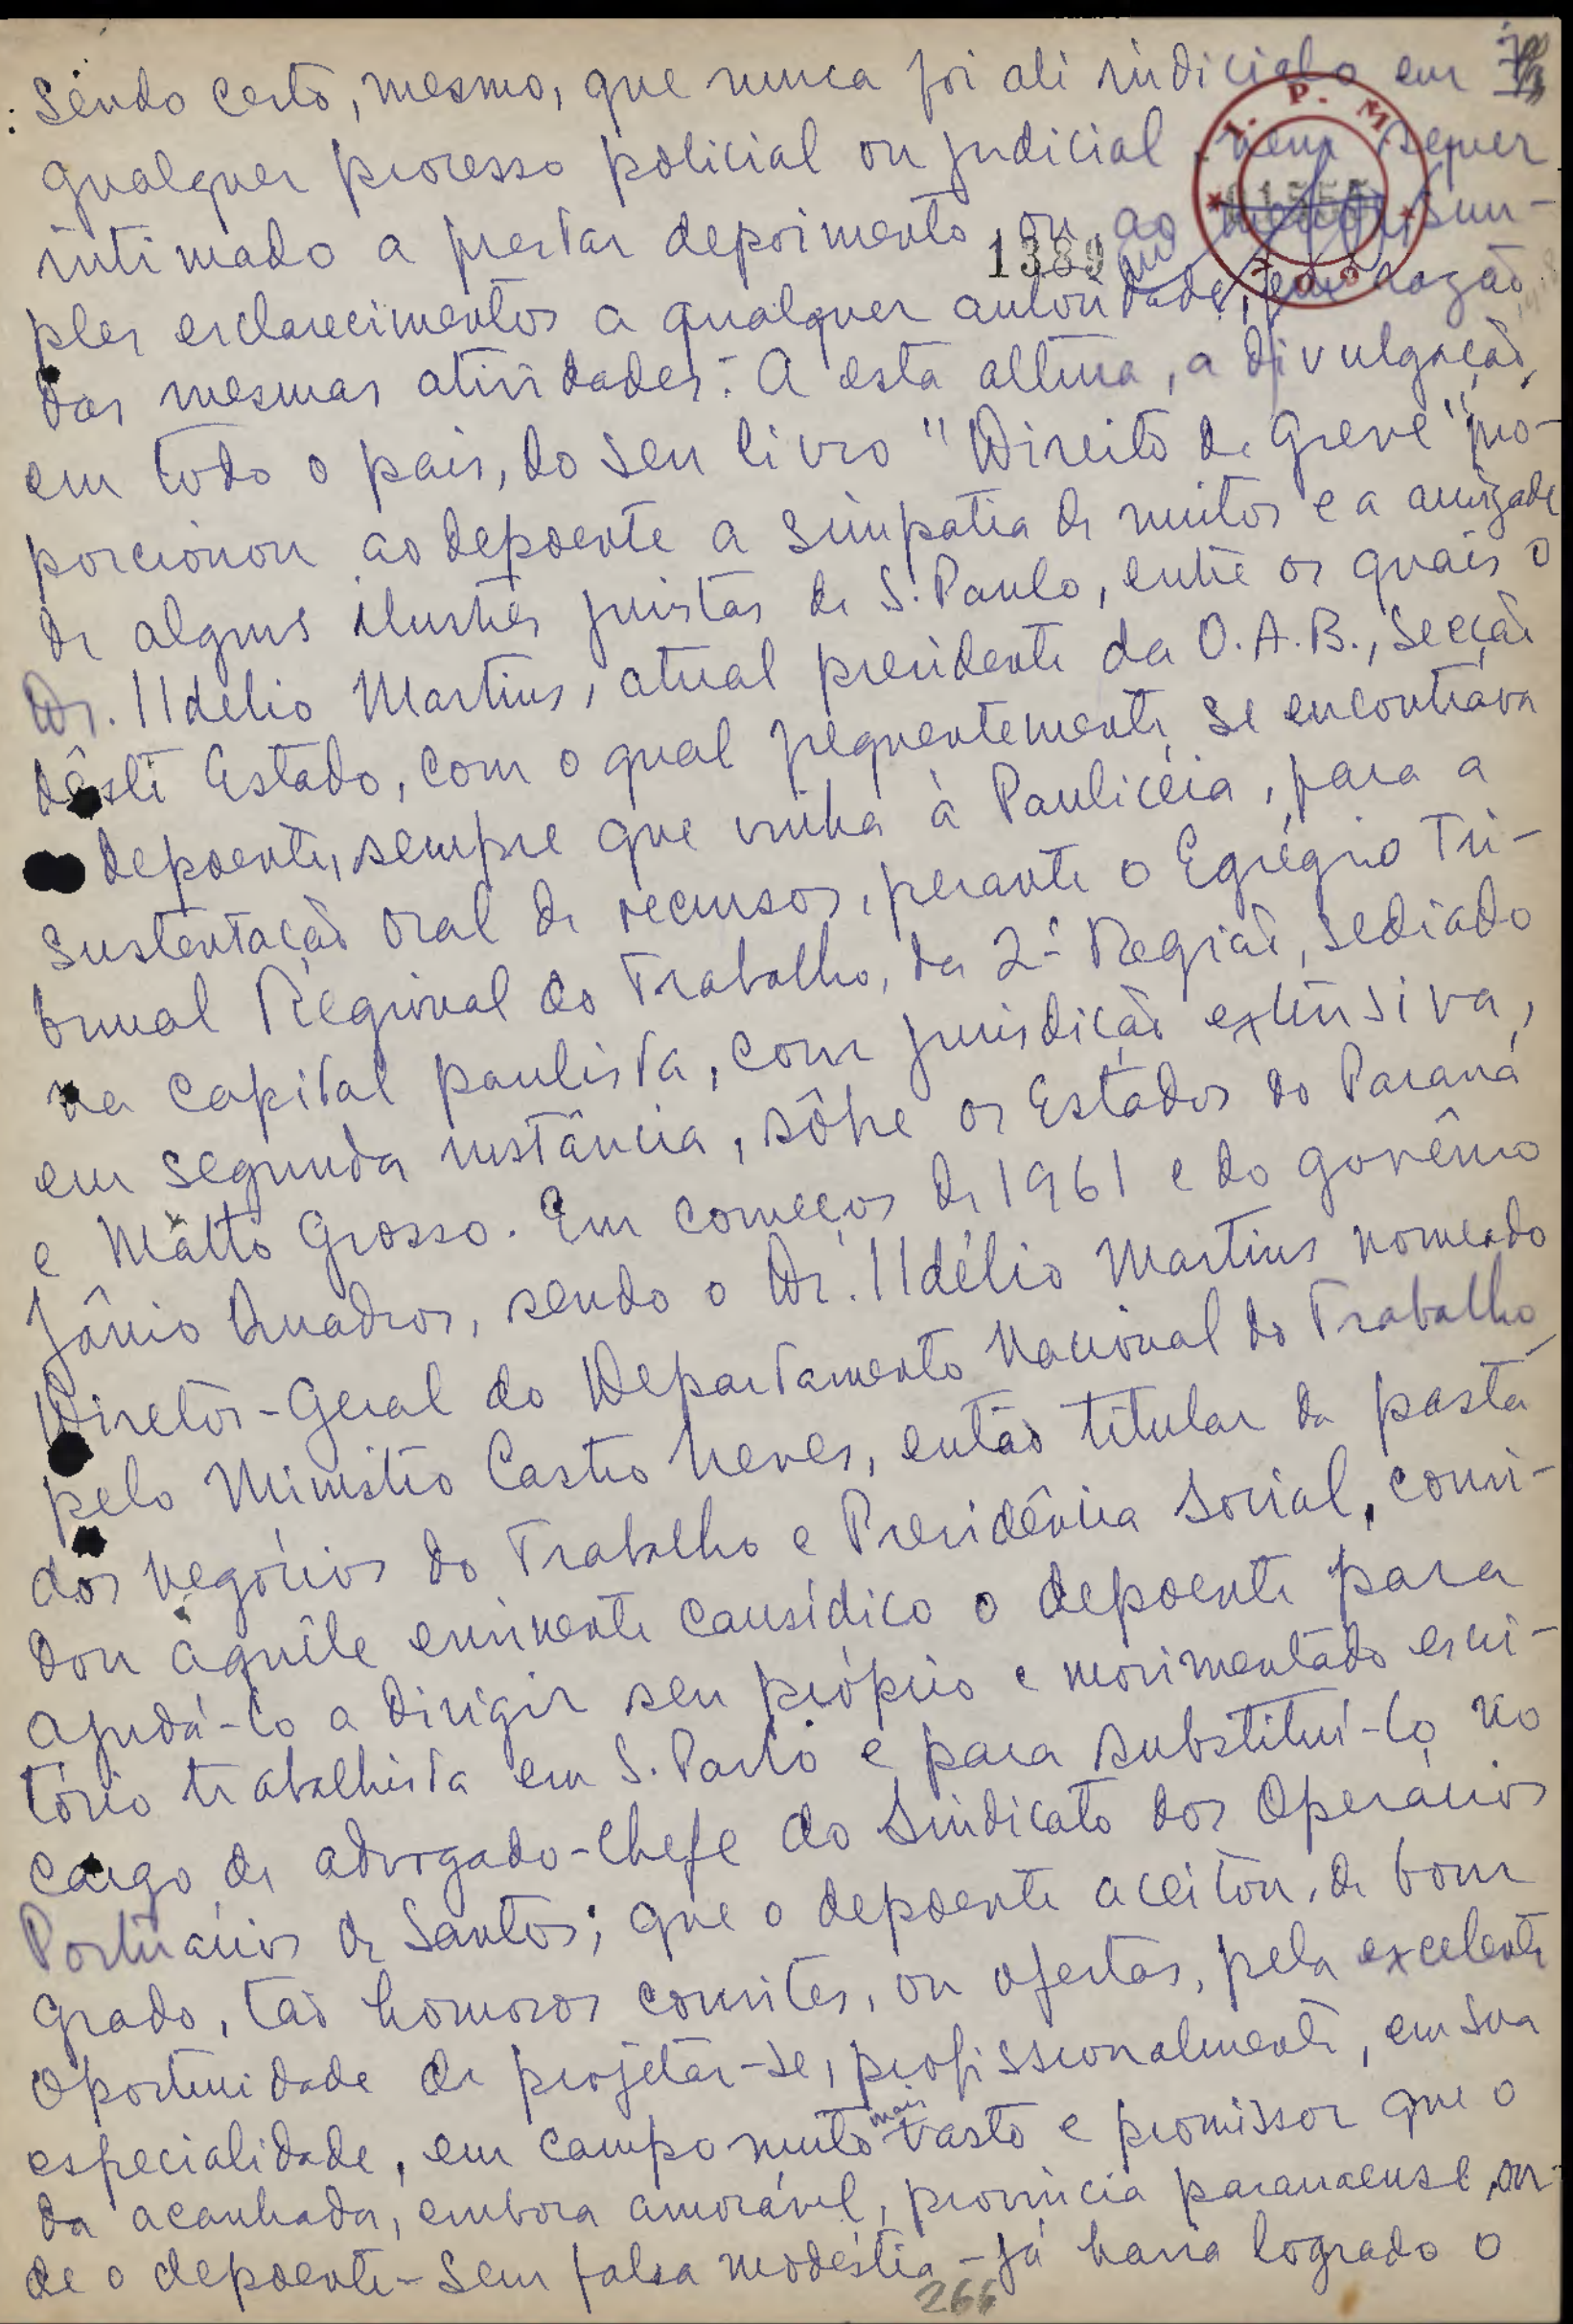 Sendo certo, mesmo, que nunca foi ali indiciado em
qualquer processo policial ou judicial, nem sequer
I. P. M
intimado a prestar depoimento ou ao sim-
1389
ples esclarecimentos a qualquer autoridade, em razão
das mesmas atividades. A esta altura, a divulgação,
em todo o país, do seu livro "Direito de Greve", pro-
porcionou ao depoente a simpatia de muitos e a amizade
de alguns ilustres juristas de S. Paulo, entre os quais o
Dr. Ildélio Martins, atual presidente da O.A.B., Secção
dêste Estado, com o qual frequentemente se encontrava
depoente, sempre que vinha à Paulicéia, para a
sustentação oral de recursos, perante o Egrégio Tri-
bunal Regional do Trabalho, da 2ª Região, sediado
na capital paulista, com jurisdição extensiva,
em segunda instância, sôbre os Estados do Paraná
e Matto Grosso. Em começos de 1961 e do govêrno
Jânio Quadros, sendo o Dr. Ildélio Martins nomeado
Diretor-Geral do Departamento Nacional do Trabalho,
pelo Ministro Castro Neves, então titular da pasta
dos negócios do Trabalho e Previdência Social, convi-
dou aquêle eminente causídico o depoente para
ajudá-lo a dirigir seu próprio e movimentado escri-
tório trabalhista em S. Paulo e para substituí-lo no
cargo de advogado-chefe do Sindicato dos Operários
Portuários de Santos; que o depoente aceitou, de bom
grado, tão honrosos convites, ou ofertas, pela excelente
oportunidade de projetar-se, profissionalmente, em sua
especialidade, em campo muito mais vasto e promissor que o
da acanhada, embora amorável, província paranaense, on-
de o depoente - sem falsa modéstia - já havia logrado o
266